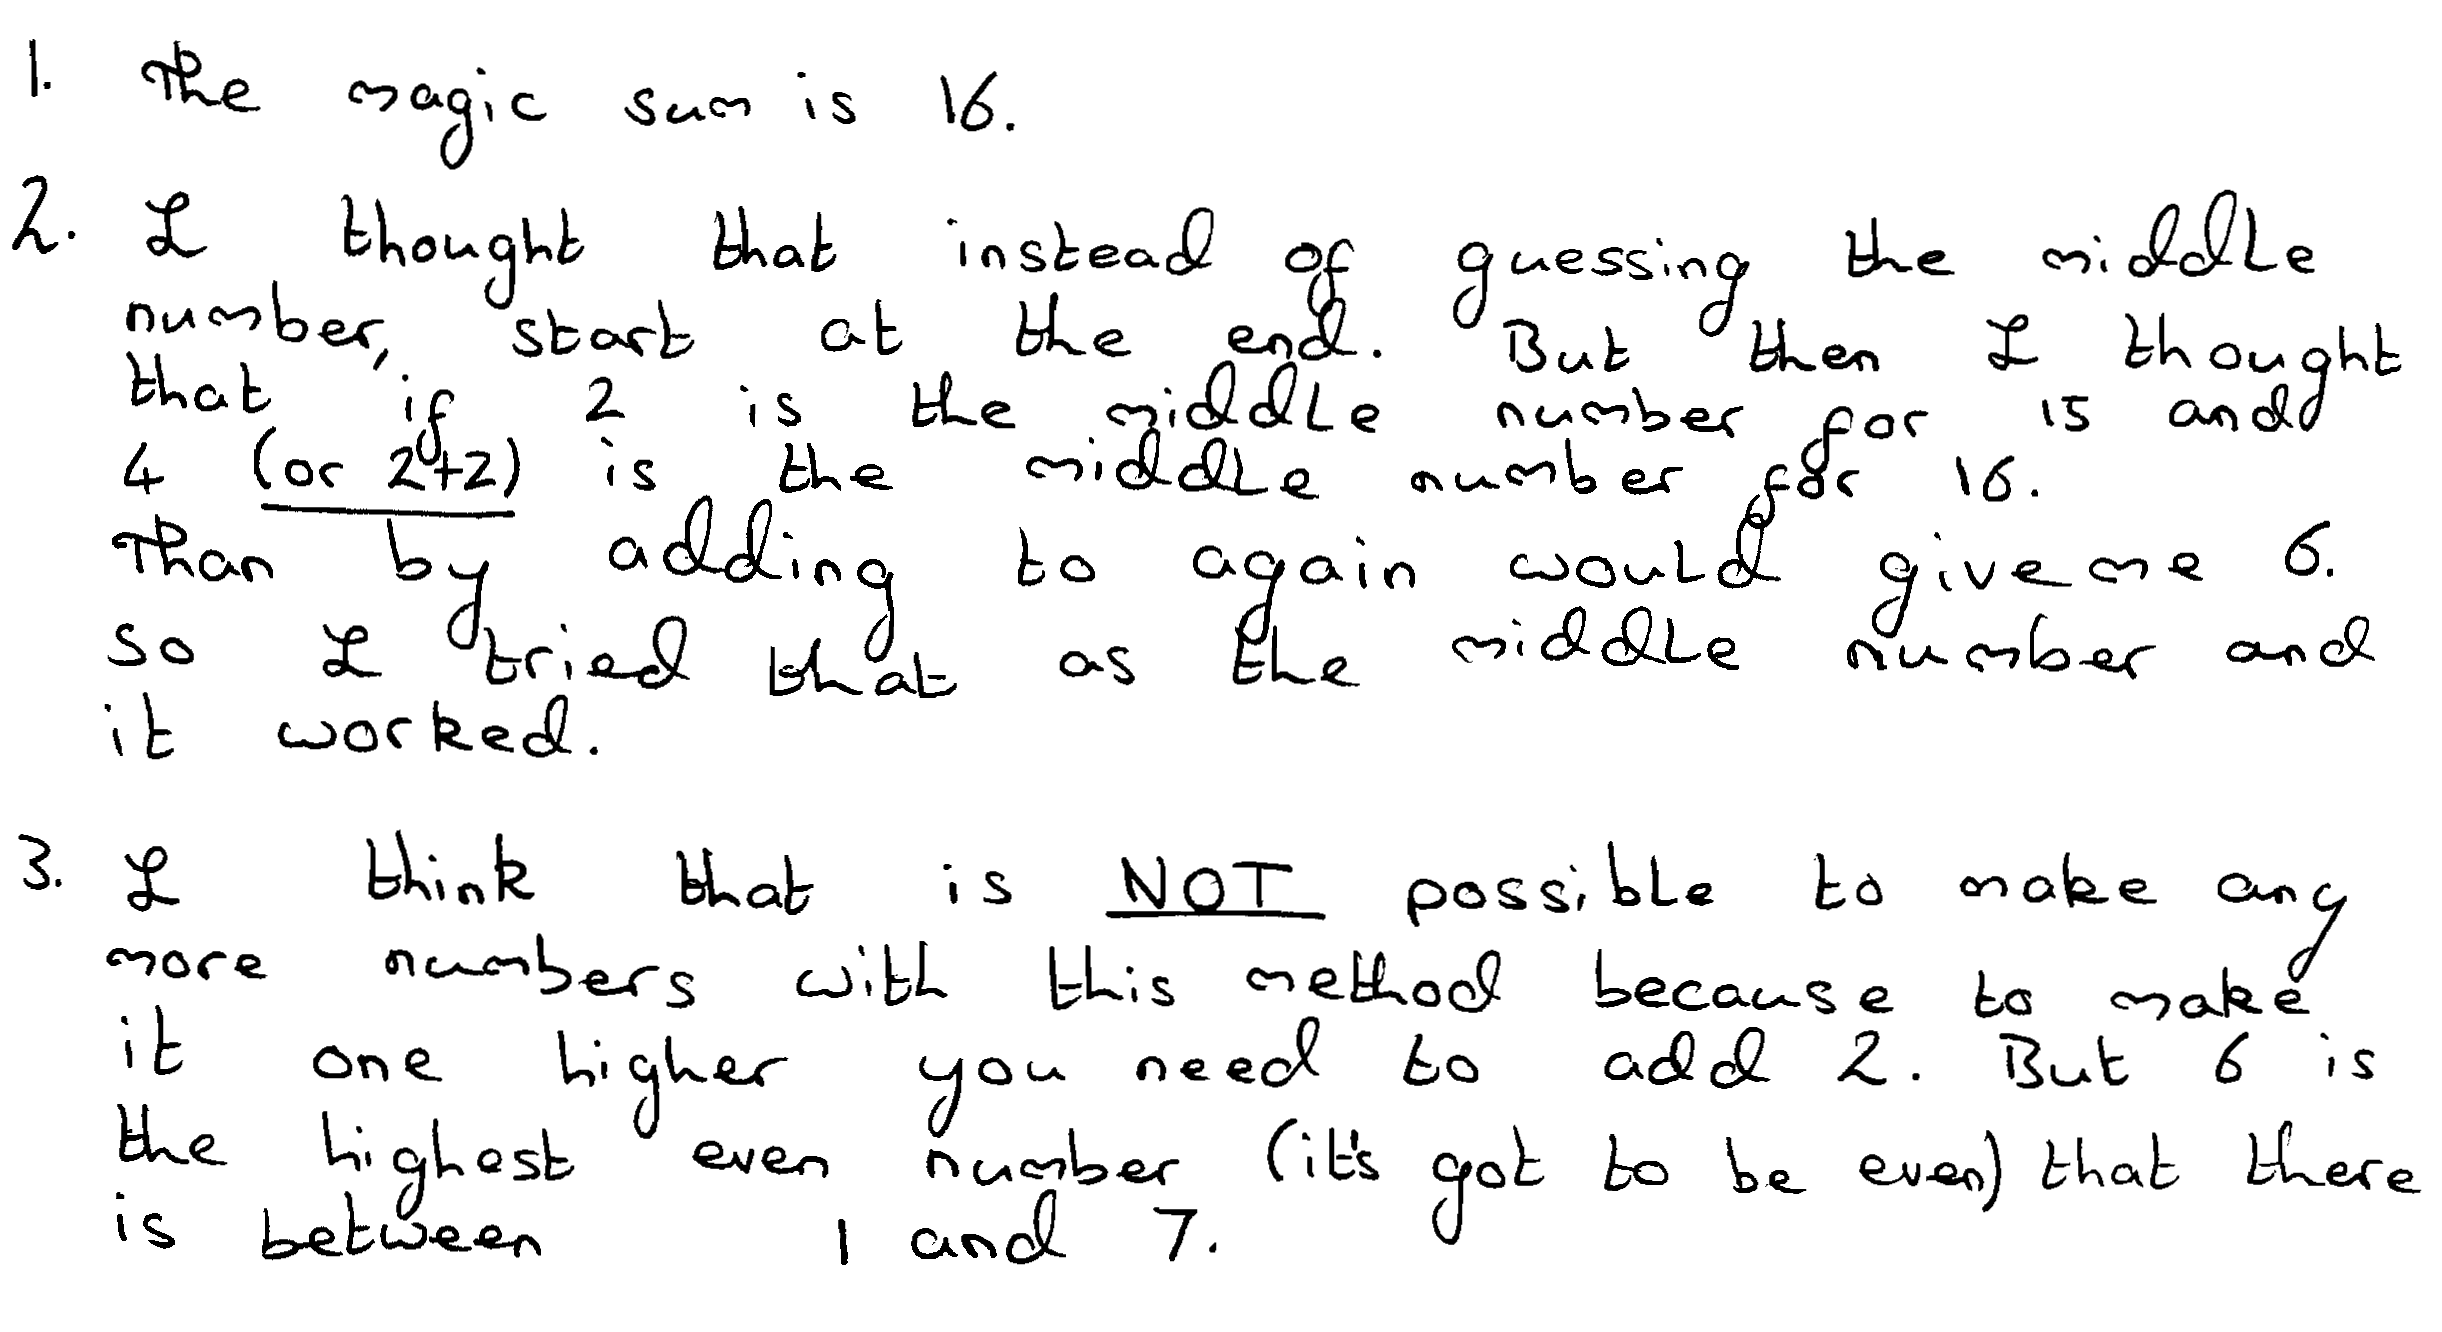 1. The magic sum is 16.
2. I thought that instead of guessing the middle
number, start at the end. But then I thought
that if 2 is the middle number for 15 and
4 (or 2+2) is the middle number for 16.
Than by adding to again would give me 6.
so I tried that as the middle number and
it worked.
3. I think that is NOT possible to make any
more numbers with this method because to make
it one higher you need to add 2. But 6 is
the highest even number (it's got to be even) that there
is between 1 and 7.